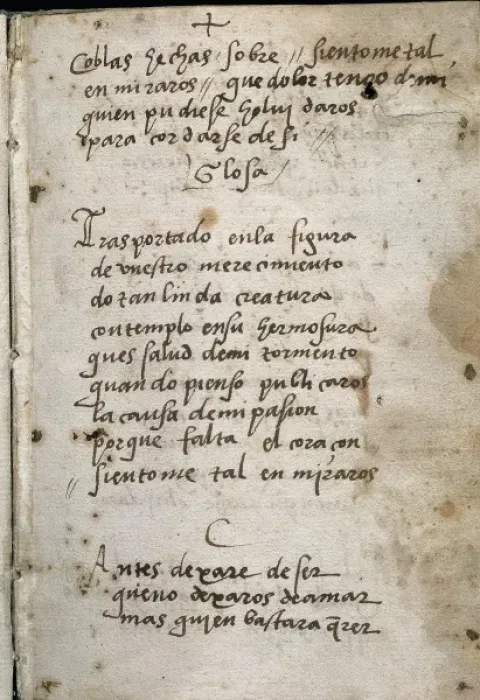 +
Coblas hechas sobre // sientome tal
en miraros // que dolor tengo demi
quien pudiese holvidaros
para cordarse de si //
Glosa /
Trasportado enla figura
de vuestro merecimiento
do tan linda creatura
contemplo ensu hermosura
ques salud demi tormento
quando pienso publicaros
la causa demi pasion
porque falta el coraçon
// sientome tal en miraros
C
Antes dexare de ser
queno dexaros deamar
mas quien bastara q̃rer